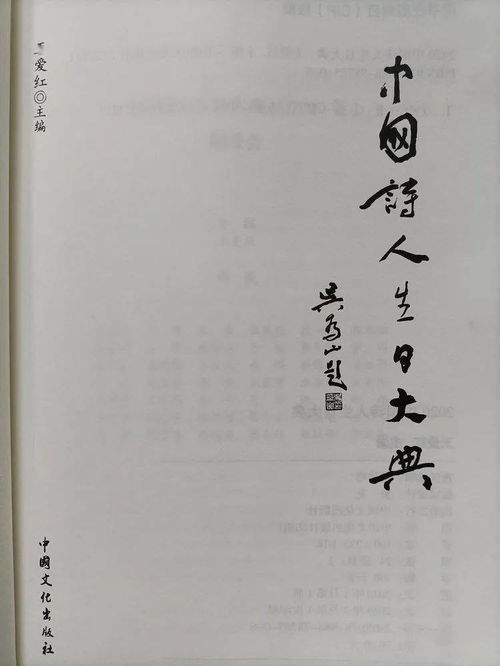 中國詩人生日大典
吴为山题
王爱红◎主编
中國文化出版社